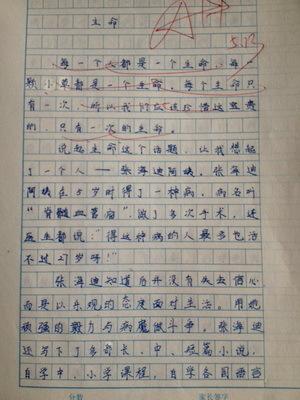 A+
5.13
生命
每一个人都是一个生命，每一
颗小草都是一个生命，每个生命只
有一次，所以我们应该珍惜这宝贵
的，只有一次的生命。
说起生命这个话题，让我想起
了一个人——张海迪阿姨。张海迪
阿姨在5岁时得了一种病，病名叫
“脊髓血管瘤”，做了多次手术，连
医生都说：“得这种病的人最多也活
不过27岁呀！”
张海迪知道后并没有失去信心
而是以乐观的态度面对生活。用她
顽强的毅力与病魔做斗争，张海迪
还写下了多部长、中、短篇小说，
自学中、小学课程，自学各国语言
分数
家长签字